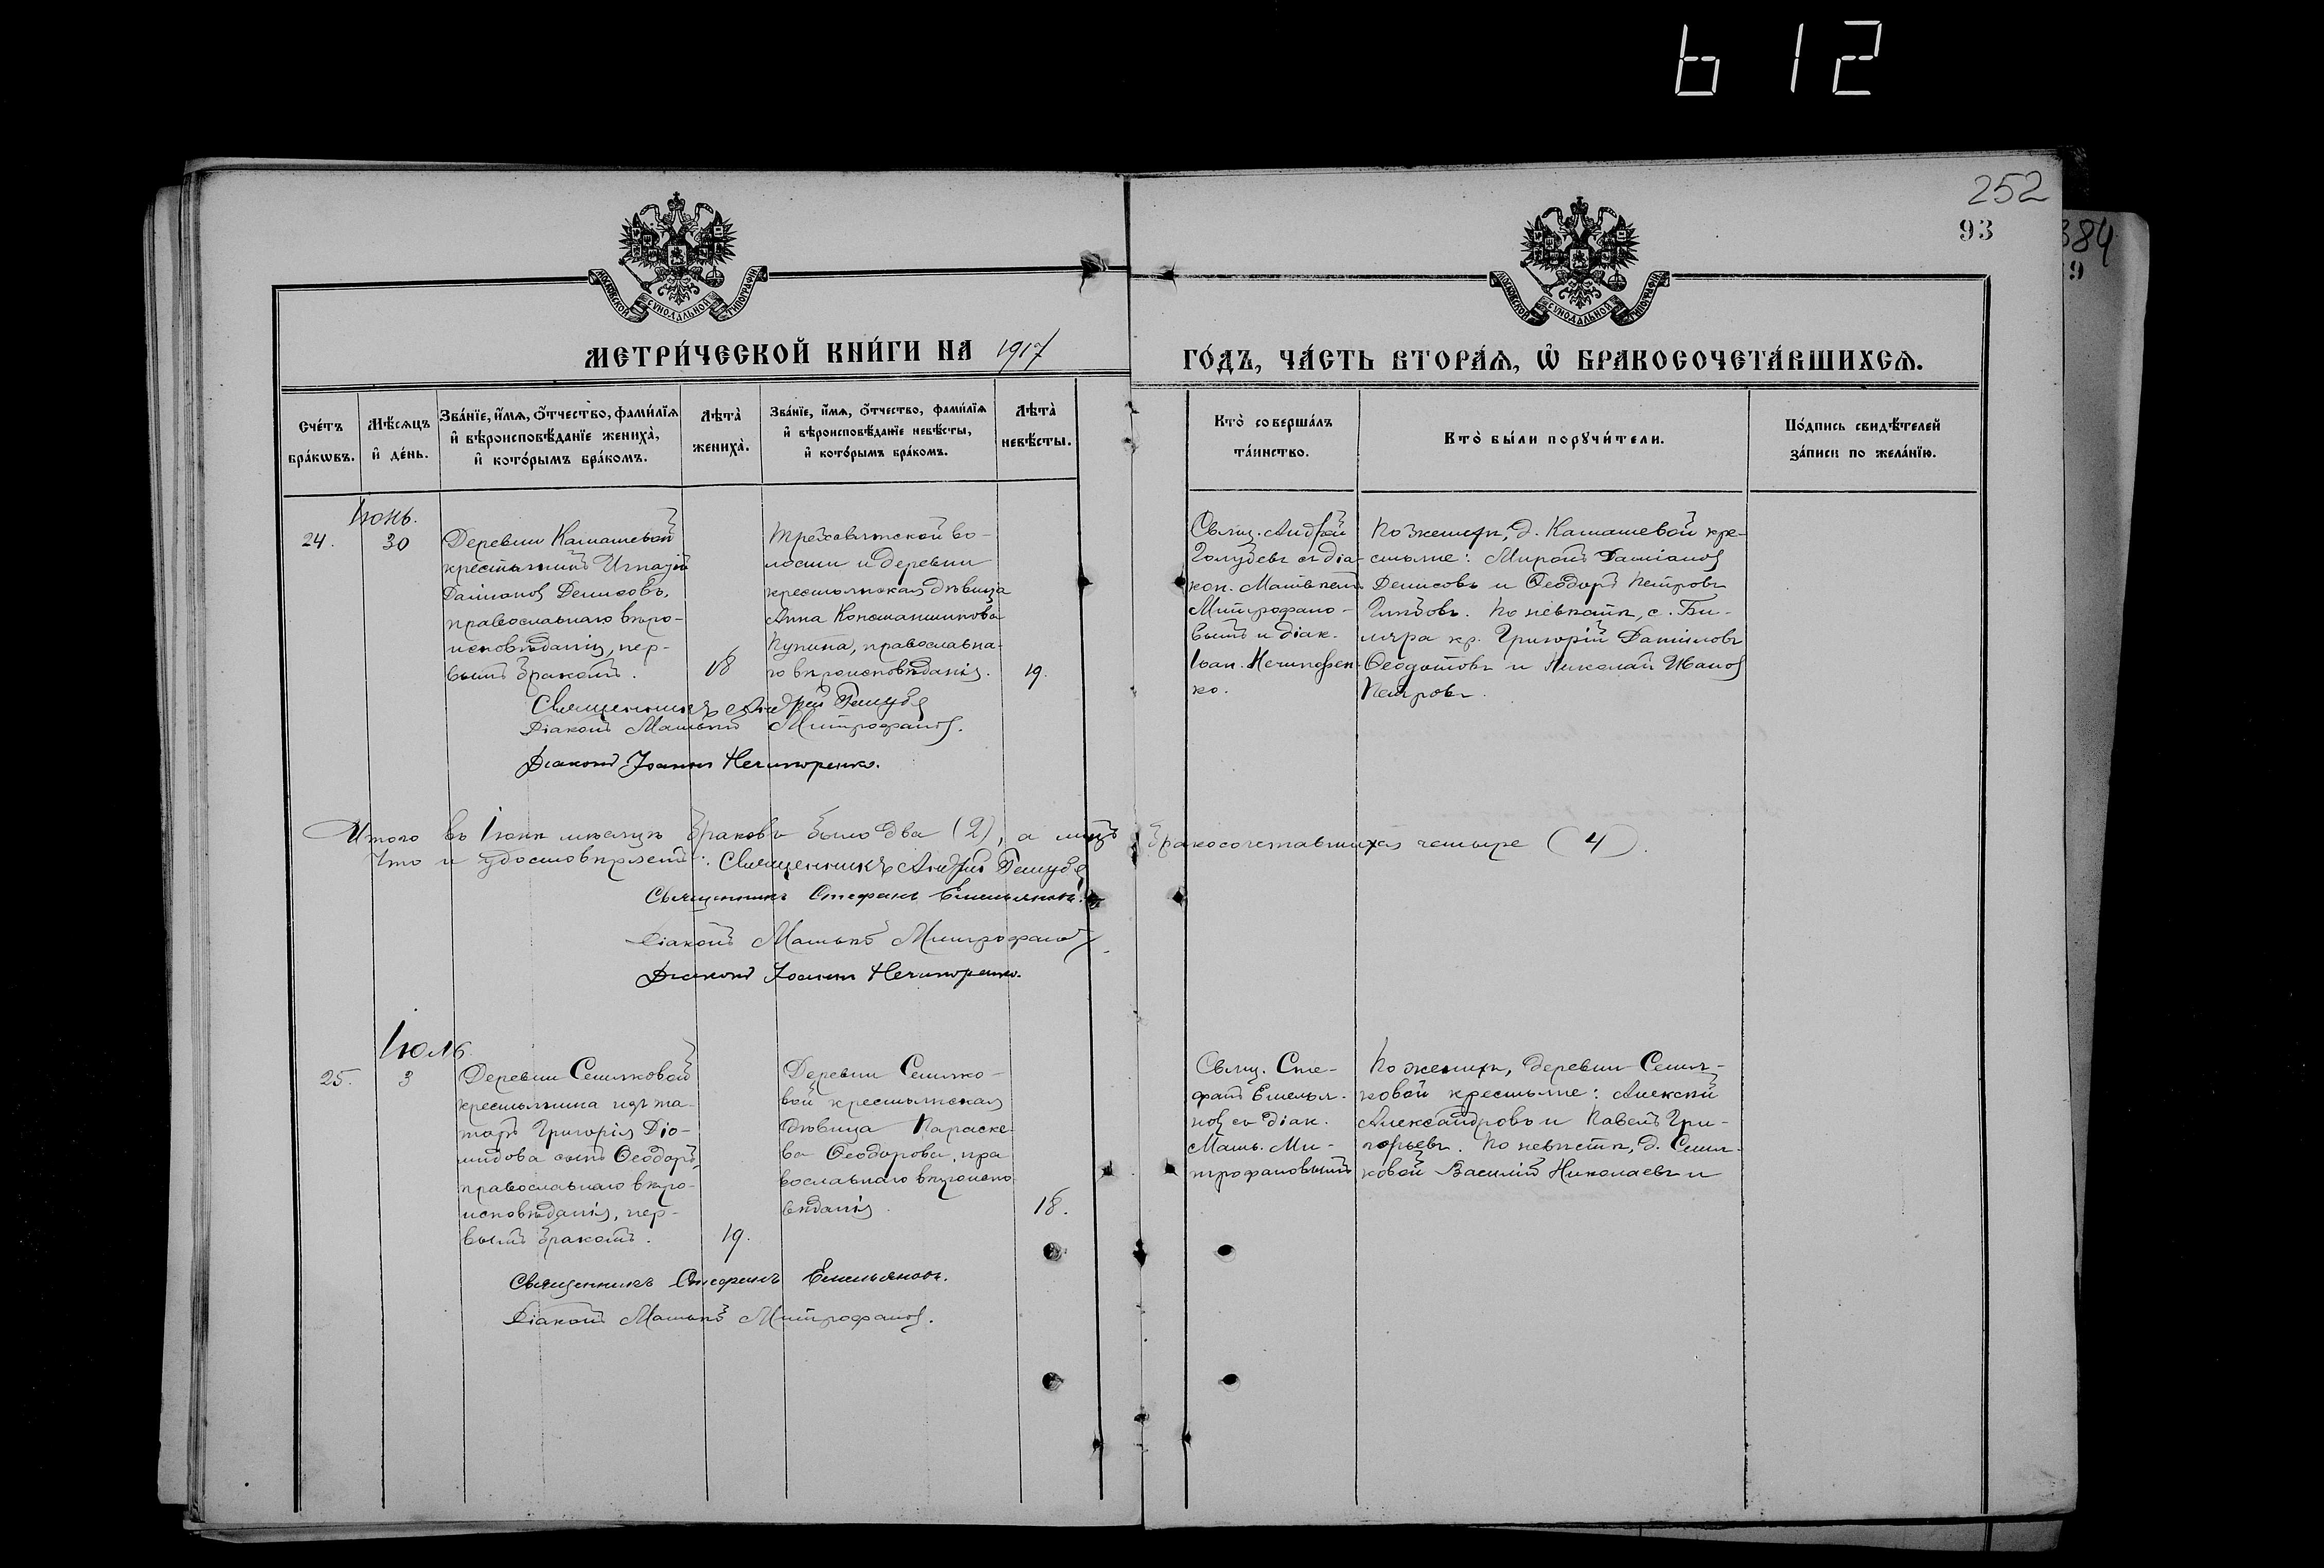 612
252
93
384
9
МОСКОВСКОЙ СѴНОДАЛЬНОЙ ТИПОГРАФІИ
МОСКОВСКОЙ СѴНОДАЛЬНОЙ ТИПОГРАФІИ
МЕТРИ́ЧЕСКОЙ КНИ́ГИ НА 1917
ГО́ДЪ, ЧА́СТЬ ВТОРА́Ѧ, Ѽ БРАКОСОЧЕТА́ВШИХСѦ.
Сче́тъ
бра́кѡвъ.
Мѣ́сѧцъ
и҆ де́нь.
Зва́нїе, и҆́мѧ, ѻ҆́тчество, фами́лїѧ
и҆ вѣроисповѣ́данїе жениха̀,
и҆ кото́рымъ бра́комъ.
Лѣта̀
жениха̀.
Зва́нїе, и҆́мѧ, ѻ҆́тчество, фами́лїѧ
и҆ вѣроисповѣ́данїе невѣ́сты,
и҆ кото́рымъ бра́комъ.
Лѣта̀
невѣ́сты.
Кто̀ соверша́лъ
та́инство.
Кто̀ бы́ли порꙋчи́тели.
По́дпись свидѣ́телей
за́писи по жела́нїю.
Іюнь.
24.
30
Деревни Камашевой
крестьянинъ Игнатій
Даміановъ Денисовъ,
православнаго вѣро-
исповѣданія, пер-
вымъ бракомъ.
18
Трехсвятской во-
лости и деревни
крестьянская дѣвица
Анна Константинова
Купина, православна-
го вѣроисповѣданія.
19.
Свящ. Андрей
Голубевъ съ діа-
кон. Матвѣемъ
Митрофано-
вымъ и діак.
Іоан. Нечипорен-
ко.
По женихѣ, д. Камашевой кре-
стьяне: Миронъ Даміановъ
Денисовъ и Ѳеодоръ Петровъ
По невѣстѣ, с. Би-
ляра кр. Григорій Даниловъ
Ѳедотовъ и Николай Ивановъ
Петровъ.
Священникъ Андрей Голубевъ
Діаконъ Матвѣй Митрофановъ.
Діаконъ Іоаннъ Нечипоренко.
Итого въ Іюнѣ мѣсяцѣ браковъ было два (2), а лицъ бракосочетавшихся четыре (4).
Что и удостовѣряемъ: Священникъ Андрей Голубевъ
Священникъ Стефанъ Емельяновъ.
Діаконъ Матвѣй Митрофановъ
Діаконъ Іоаннъ Нечипоренко.
Іюль
25.
3
Деревни Семяковой
крестьянина изъ та-
таръ Григорія Діо-
мидова сынъ Ѳеодоръ,
православнаго вѣро-
исповѣданія, пер-
вымъ бракомъ.
19.
Деревни Семяко-
вой крестьянская
дѣвица Параске-
ва Ѳеодорова, пра
вославнаго вѣроиспо-
вѣданія
18.
Свящ. Сте-
фанъ Емелья-
новъ съ діак.
Матв. Ми-
трофановымъ
По женихѣ, деревни Семя-
ковой крестьяне: Алексѣй
Александровъ и Павелъ Гри-
горьевъ. По невѣстѣ, д. Семя-
ковой Василій Николаевъ и
Священникъ Стефанъ Емельяновъ.
Діаконъ Матвѣй Митрофановъ.